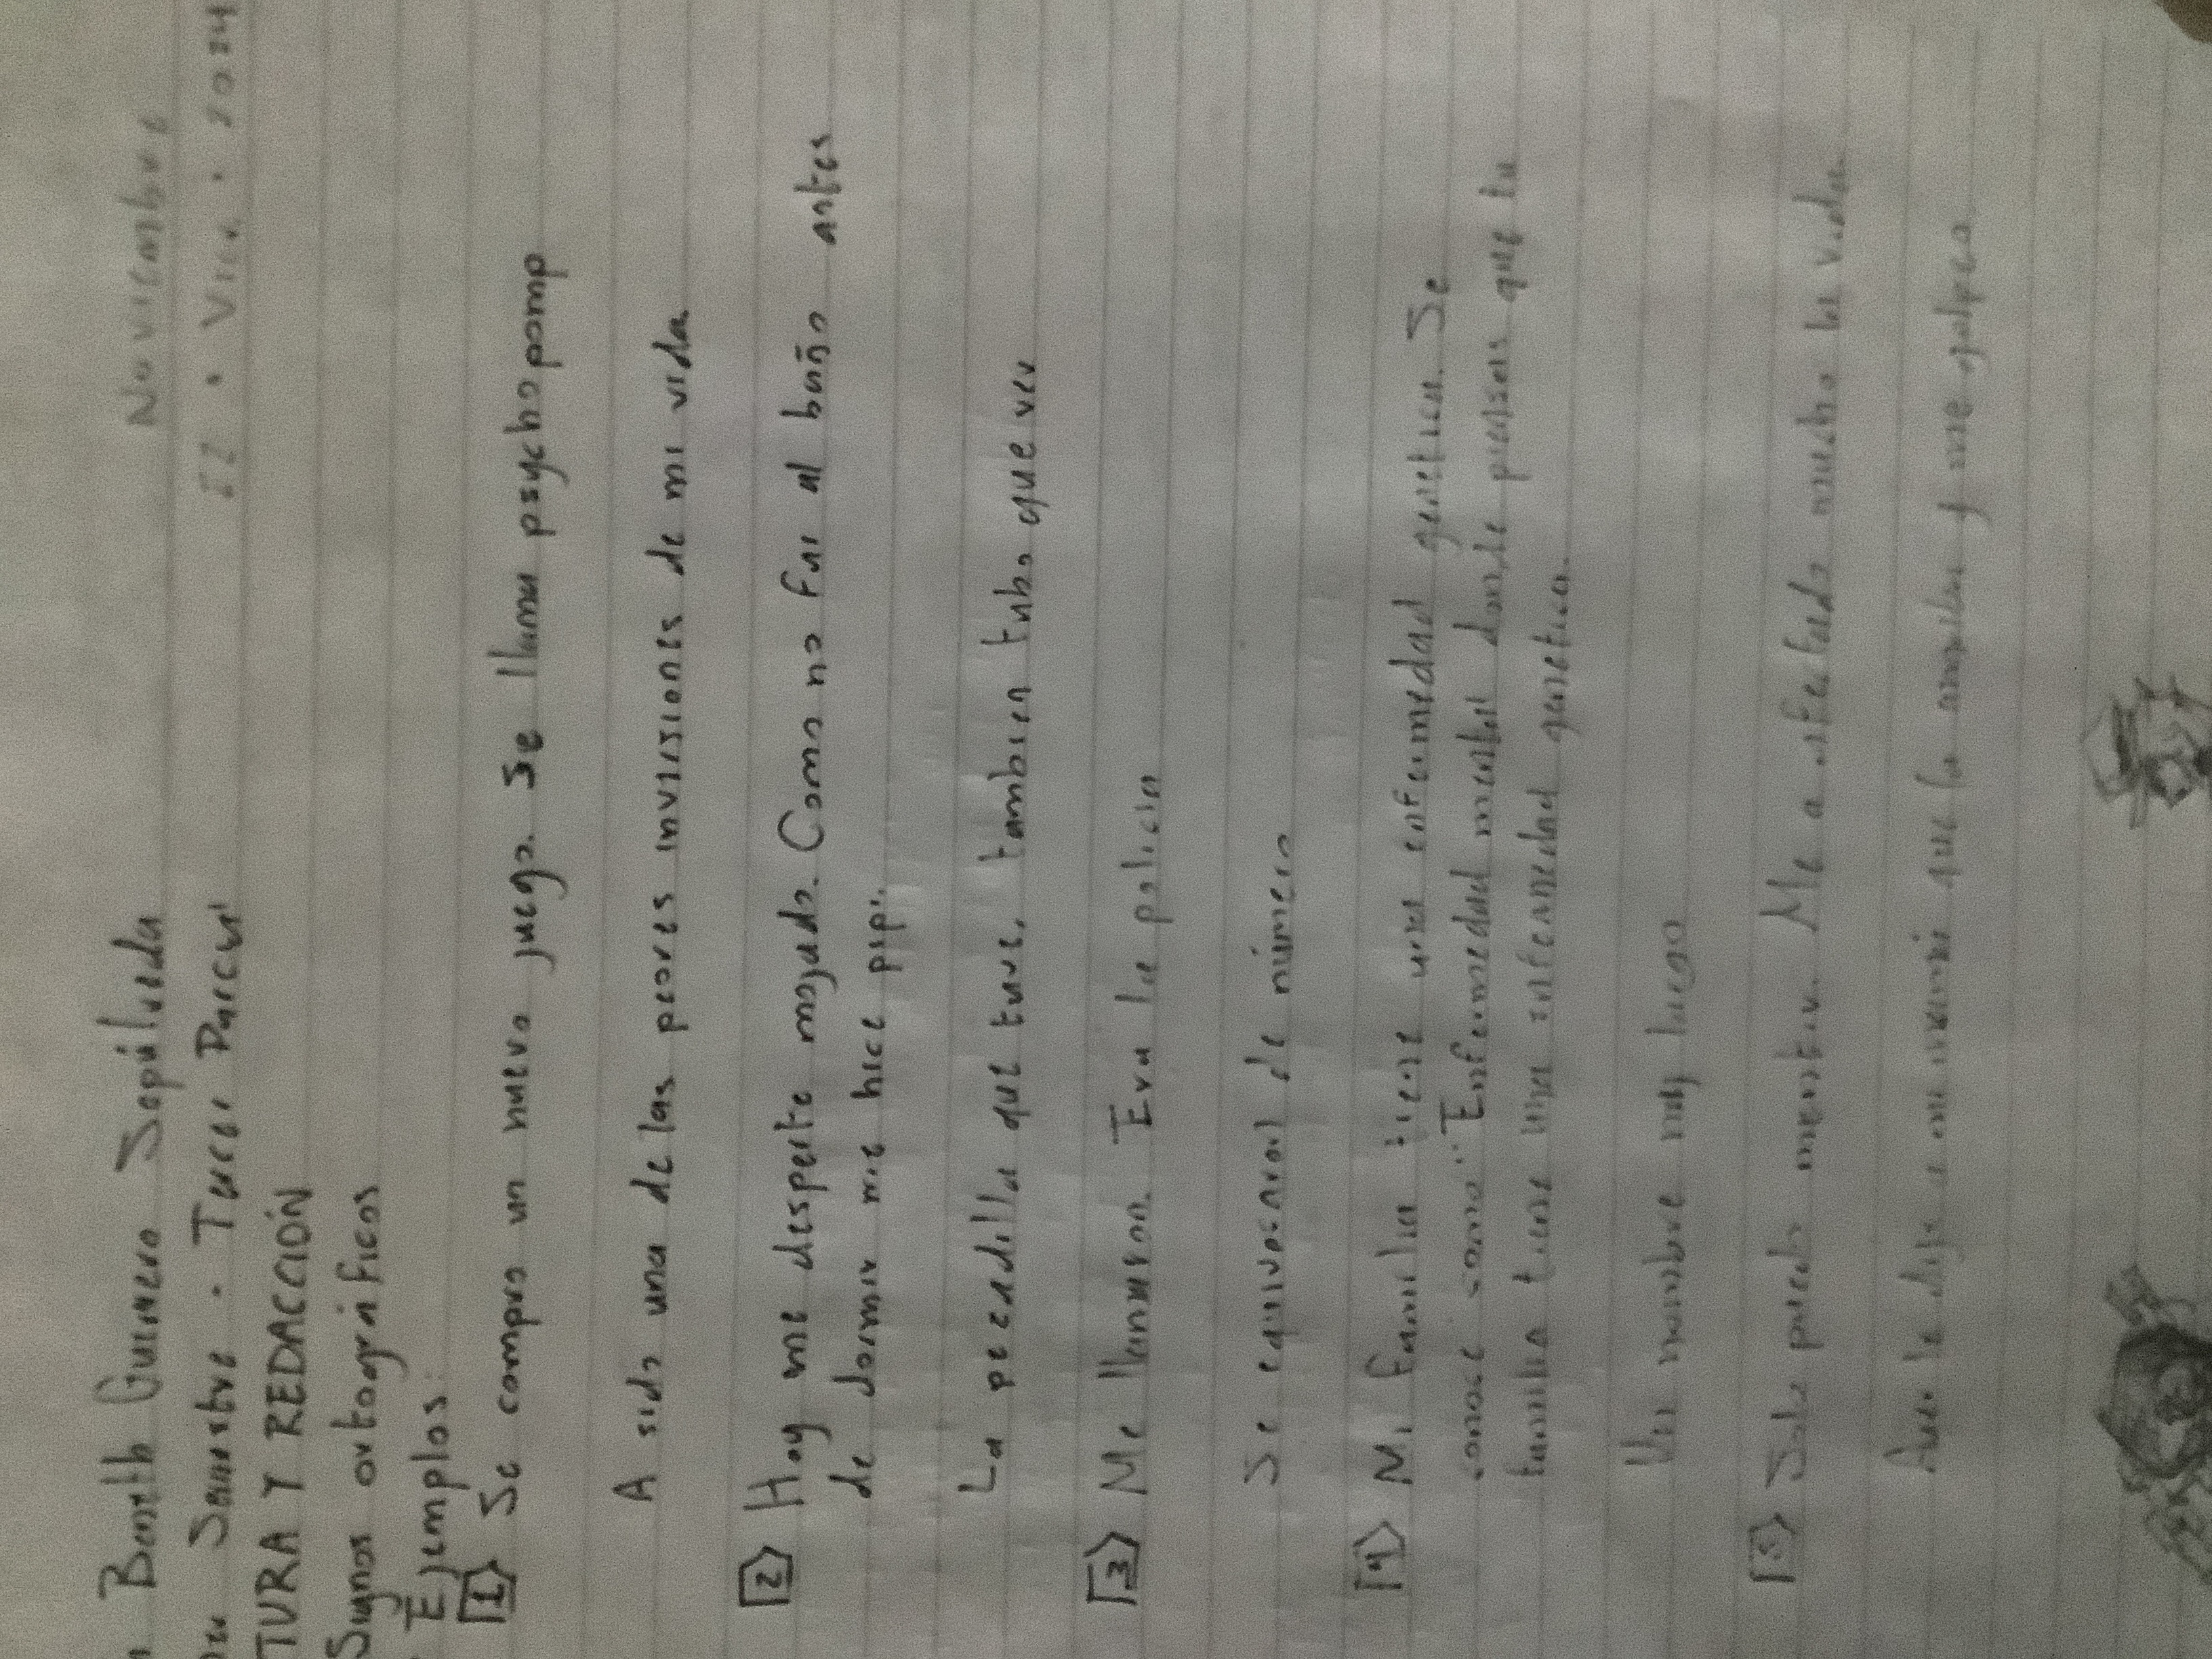 Banth Guinero Sepúlveda Noviembre
Semestre · Tercer Parcial 22 · Vier · 2024
TURA Y REDACCIÓN
Signos ortográficos
Ejemplos:
1 Se compro un nuevo juego. Se llama psychopomp
A sido una de las peores inversiones de mi vida
2 Hoy me desperte mojado. Como no fui al baño antes
de dormir me hice pipi.
La pecadilla que tuve, tambien tubo que ver
3 Me llamaron. Era la policia
Se equivocaron de número
4 Mi familia tiene una enfermedad genetica. Se
conoce como: Enfermedad mental donde piensas que tu
familia tiene una enfermedad genetica.
Un nombre muy largo
5 Solo puedo mentir. Me a afectado mucho la vida
le dije a mi mamá que la amaba y me golpeo